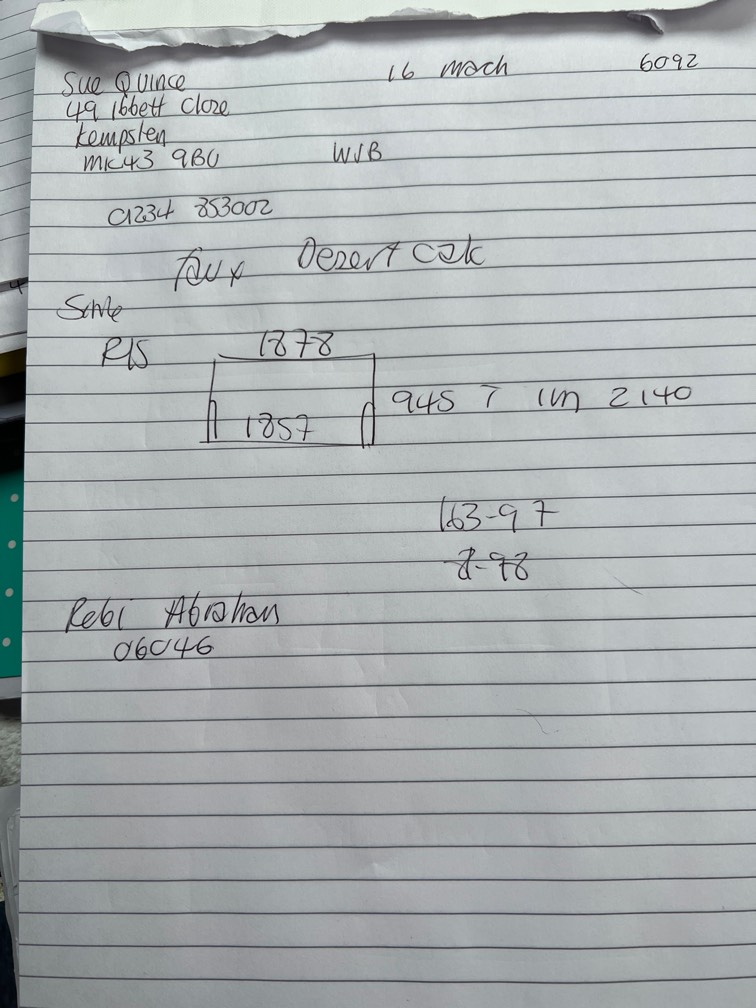 Sue Quince 16 Mach 6092
49 Ibbett Close
Kempsten
MK43 9BU WJB
01234 853002
faux Desert Oak
Smile
R/S 1878
1857 945 T 1m 2140
163-97
8-98
Rebi Abraham
06046